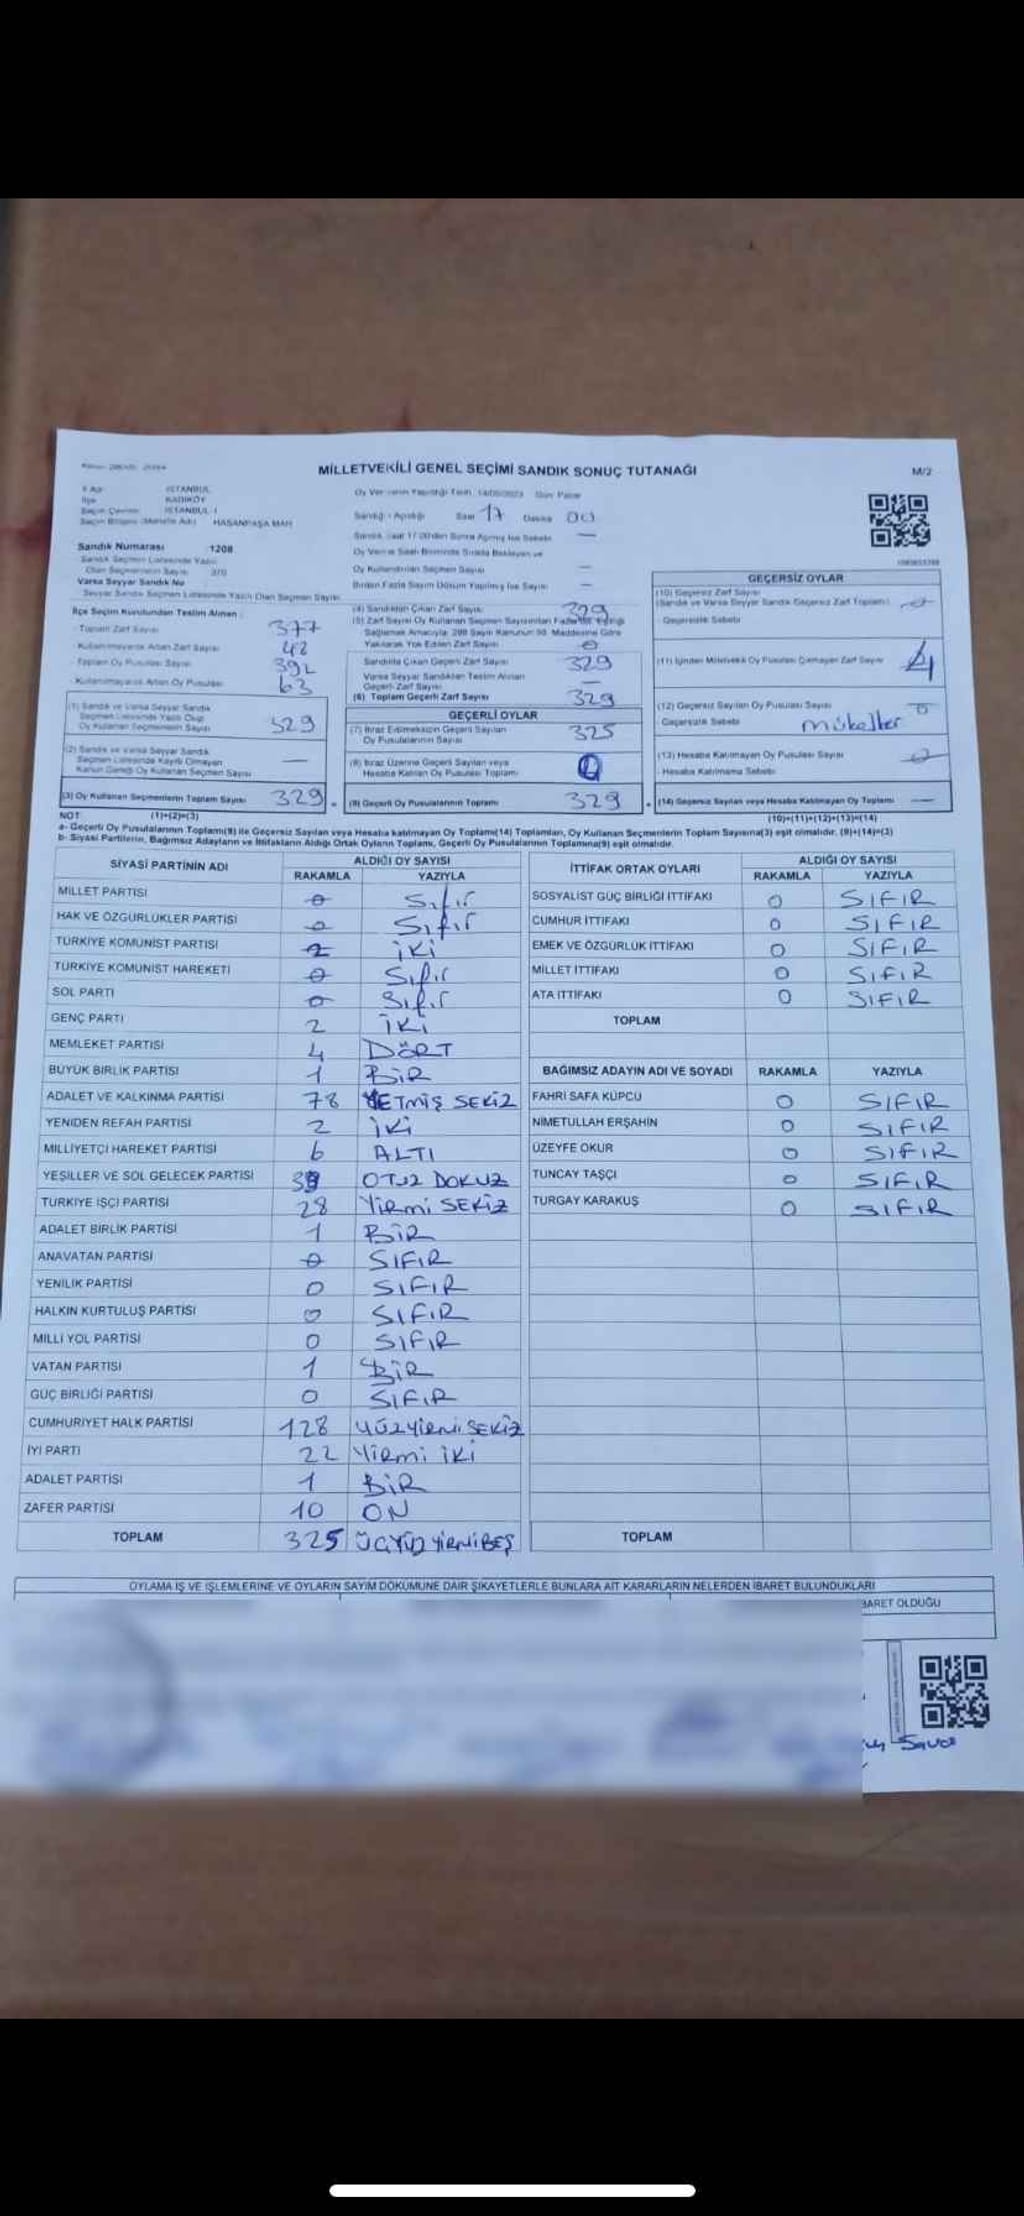 MİLLETVEKİLİ GENEL SEÇİMİ SANDIK SONUÇ TUTANAĞI
M/2
İSTANBUL
KADIKÖY
İSTANBUL I
HASANPAŞA MAH
Oy Verme
14/05/2023 Gün Pazar
Saat 17 Dakika 00
Sandık Numarası 1208
Varsa Seyyar Sandık No
İlçe Seçim Kurulundan Teslim Alınan :
Toplam Zarf Sayısı 377
Kullanılmayarak Artan Zarf Sayısı 42
Toplam Oy Pusulası Sayısı 392
Kullanılmayarak Artan Oy Pusulası 63
(1) Sandık ve Varsa Seyyar Sandık
Seçmen Listesinde Yazılı Olup
Oy Kullanan Seçmenlerin Sayısı 329
(2) Sandık ve Varsa Seyyar Sandık
Seçmen Listesinde Kayıtlı Olmayan
Kanun Gereği Oy Kullanan Seçmen Sayısı —
(3) Oy Kullanan Seçmenlerin Toplam Sayısı 329
(1)+(2)=(3)
(4) Sandıktan Çıkan Zarf Sayısı 329
Sandıkta Çıkan Geçerli Zarf Sayısı 329
Varsa Seyyar Sandıktan Teslim Alınan
Geçerli Zarf Sayısı —
(6) Toplam Geçerli Zarf Sayısı 329
GEÇERLİ OYLAR
(7) İtiraz Edilmeksizin Geçerli Sayılan
Oy Pusulalarının Sayısı 325
(8) İtiraz Üzerine Geçerli Sayılan veya
Hesaba Katılan Oy Pusulası Toplamı
(9) Geçerli Oy Pusulalarının Toplamı 329
GEÇERSİZ OYLAR
(10) Geçersiz Zarf Sayısı
(Sandık ve Varsa Seyyar Sandık Geçersiz Zarf Toplamı)
Geçersizlik Sebebi
(11) İçinden Milletvekili Oy Pusulası Çıkmayan Zarf Sayısı 4
(12) Geçersiz Sayılan Oy Pusulası Sayısı 0
Geçersizlik Sebebi
(13) Hesaba Katılmayan Oy Pusulası Sayısı
Hesaba Katılmama Sebebi
(14) Geçersiz Sayılan veya Hesaba Katılmayan Oy Toplamı —
(10)+(11)+(12)+(13)=(14)
NOT
a- Geçerli Oy Pusulalarının Toplamı(9) ile Geçersiz Sayılan veya Hesaba katılmayan Oy Toplamı(14) Toplamları, Oy Kullanan Seçmenlerin Toplam Sayısına(3) eşit olmalıdır. (9)+(14)=(3)
b- Siyasi Partilerin, Bağımsız Adayların ve İttifakların Aldığı Ortak Oyların Toplamı, Geçerli Oy Pusulalarının Toplamına(9) eşit olmalıdır.
SİYASİ PARTİNİN ADI ALDIĞI OY SAYISI
RAKAMLA YAZIYLA
MİLLET PARTİSİ 0 Sıfır
HAK VE ÖZGÜRLÜKLER PARTİSİ 0 Sıfır
TÜRKİYE KOMÜNİST PARTİSİ 2 İKİ
TÜRKİYE KOMÜNİST HAREKETİ 0 Sıfır
SOL PARTİ 0 Sıfır
GENÇ PARTİ 2 İKİ
MEMLEKET PARTİSİ 4 DÖRT
BÜYÜK BİRLİK PARTİSİ 1 BİR
ADALET VE KALKINMA PARTİSİ 78 YETMİŞ SEKİZ
YENİDEN REFAH PARTİSİ 2 İKİ
MİLLİYETÇİ HAREKET PARTİSİ 6 ALTI
YEŞİLLER VE SOL GELECEK PARTİSİ 39 OTUZ DOKUZ
TÜRKİYE İŞÇİ PARTİSİ 28 YİRMİ SEKİZ
ADALET BİRLİK PARTİSİ 1 BİR
ANAVATAN PARTİSİ 0 SIFIR
YENİLİK PARTİSİ 0 SIFIR
HALKIN KURTULUŞ PARTİSİ 0 SIFIR
MİLLİ YOL PARTİSİ 0 SIFIR
VATAN PARTİSİ 1 BİR
GÜÇ BİRLİĞİ PARTİSİ 0 SIFIR
CUMHURİYET HALK PARTİSİ 128 YÜZYİRMİSEKİZ
İYİ PARTİ 22 YİRMİ İKİ
ADALET PARTİSİ 1 BİR
ZAFER PARTİSİ 10 ON
TOPLAM 325 ÜÇYÜZ YİRMİBEŞ
İTTİFAK ORTAK OYLARI ALDIĞI OY SAYISI
RAKAMLA YAZIYLA
SOSYALİST GÜÇ BİRLİĞİ İTTİFAKI 0 SIFIR
CUMHUR İTTİFAKI 0 SIFIR
EMEK VE ÖZGÜRLÜK İTTİFAKI 0 SIFIR
MİLLET İTTİFAKI 0 SIFIR
ATA İTTİFAKI 0 SIFIR
TOPLAM
BAĞIMSIZ ADAYIN ADI VE SOYADI RAKAMLA YAZIYLA
FAHRİ SAFA KÜPCÜ 0 SIFIR
NİMETULLAH ERŞAHİN 0 SIFIR
ÜZEYFE OKUR 0 SIFIR
TUNCAY TAŞÇI 0 SIFIR
TURGAY KARAKUŞ 0 SIFIR
TOPLAM
OYLAMA İŞ VE İŞLEMLERİNE VE OYLARIN SAYIM DÖKÜMÜNE DAİR ŞİKAYETLERLE BUNLARA AİT KARARLARIN NELERDEN İBARET BULUNDUKLARI
BARET OLDUĞU